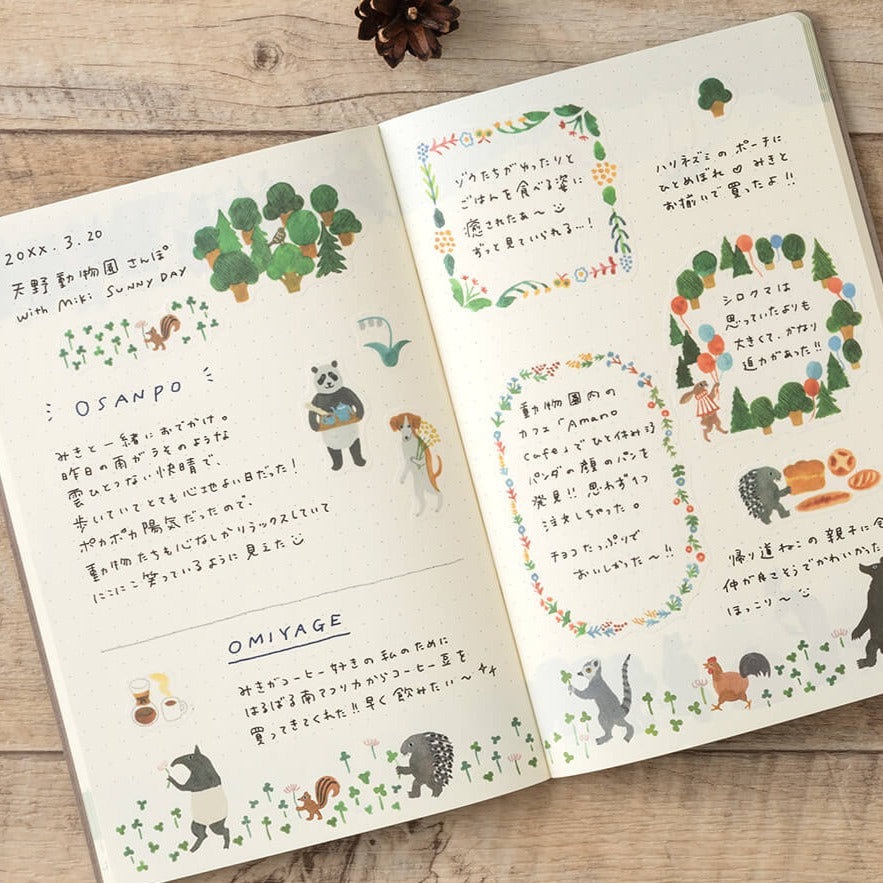 20XX.3.20
天野動物園さんぽ
with Miki SUNNY DAY
OSANPO
みきと一緒におでかけ。
昨日の雨がうそのような
雲ひとつない快晴で、
歩いていてとても心地よい日だった!
ポカポカ陽気だったので、
動物たちも心なしかリラックスしていて
にこにこ笑っているように見えた
OMIYAGE
みきがコーヒー好きの私のために
はるばる南アフリカからコーヒー豆を
買ってきてくれた!!早く飲みたい〜
ゾウたちがゆったりと
ごはんを食べる姿に
癒されたぁ〜
ずっと見ていられる…!
ハリネズミのポーチに
ひとめぼれ♡みきと
お揃いで買ったよ!!
シロクマは
思っていたよりも
大きくて、かなり
迫力があった!!
動物園内の
カフェ「Amano
Cafe」でひと休み
パンダの顔のパンを
発見!!思わず1つ
注文しちゃった。
チョコたっぷりで
おいしかった〜!!
帰り道ねこの親子に会
仲が良さそうでかわいかった
ほっこり〜